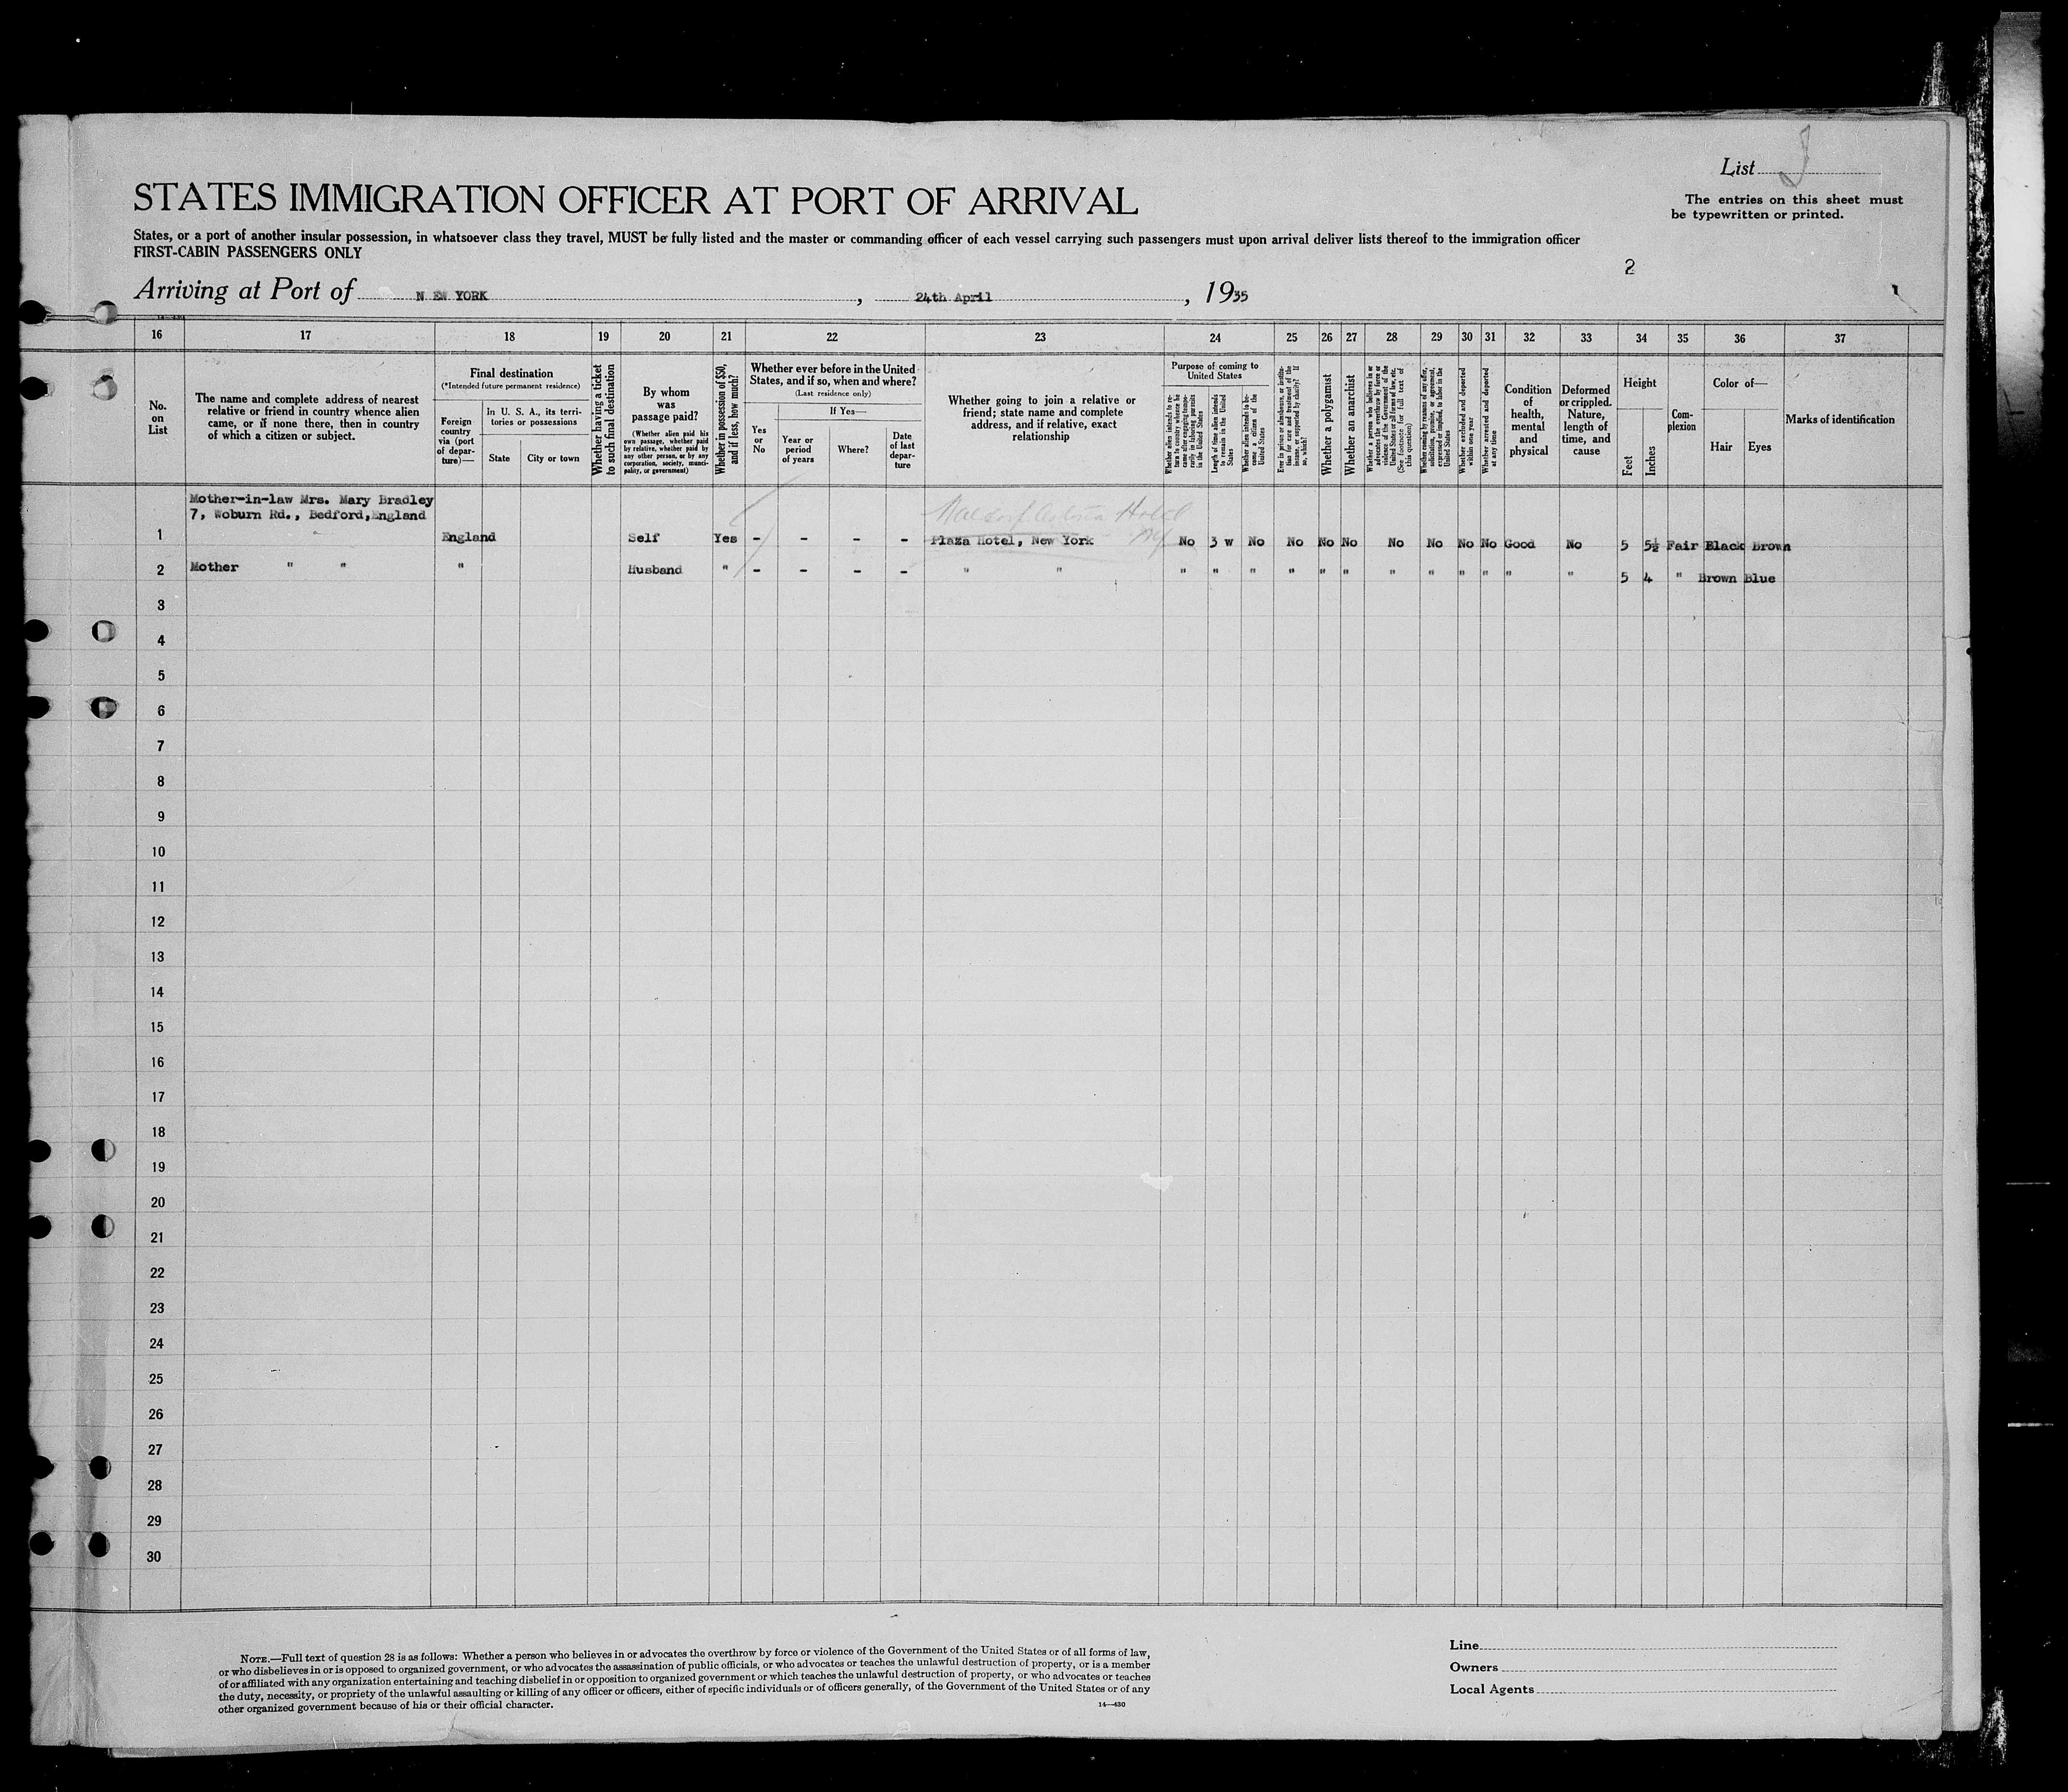 List
STATES IMMIGRATION OFFICER AT PORT OF ARRIVAL
The entries on this sheet must
be typewritten or printed.
States, or a port of another insular possession, in whatsoever class they travel, MUST be fully listed and the master or commanding officer of each vessel carrying such passengers must upon arrival deliver lists thereof to the immigration officer
FIRST-CABIN PASSENGERS ONLY
2
Arriving at Port of N EW YORK, 24th April, 1935
16 17 18 19 20 21 22 23 24 25 26 27 28 29 30 31 32 33 34 35 36 37
No.
on
List
The name and complete address of nearest
relative or friend in country whence alien
came, or if none there, then in country
of which a citizen or subject.
Final destination
(*Intended future permanent residence)
Foreign
country
via (port
of depar-
ture)—
In U. S. A., its terri-
tories or possessions
State
City or town
Whether having a ticket
to such final destination
By whom
was
passage paid?
(Whether alien paid his
own passage, whether paid
by relative, whether paid by
any other person, or by any
corporation, society, munici-
pality, or government)
Whether in possession of $50,
and if less, how much?
Whether ever before in the United
States, and if so, when and where?
(Last residence only)
Yes
or
No
If Yes—
Year or
period
of years
Where?
Date
of last
depar-
ture
Whether going to join a relative or
friend; state name and complete
address, and if relative, exact
relationship
Purpose of coming to
United States
Whether alien intends to re-
turn to country whence he
came after engaging tempo-
rarily in laboring pursuits
in the United States
Length of time alien intends
to remain in the United
States
Whether alien intends to be-
come a citizen of the
United States
Ever in prison or almshouse, or institu-
tion for care and treatment of the
insane, or supported by charity? If
so, which?
Whether a polygamist
Whether an anarchist
Whether a person who believes in or
advocates the overthrow by force or
violence of the Government of the
United States or all forms of law, etc.
(See footnote for full text of
this question)
Whether coming by reason of any offer,
solicitation, promise, or agreement,
expressed or implied, to labor in the
United States
Whether excluded and deported
within one year
Whether arrested and deported
at any time
Condition
of
health,
mental
and
physical
Deformed
or crippled.
Nature,
length of
time, and
cause
Height
Feet
Inches
Com-
plexion
Color of—
Hair
Eyes
Marks of identification
Mother-in-law Mrs. Mary Bradley
7, Woburn Rd., Bedford,England
Waldorf Astoria Hotel
1 England Self Yes - - - - Plaza Hotel, New York No 3 w No No No No No No No No Good No 5 5½ Fair Black Brown
2 Mother " " " Husband " - - - - " " " " " " " " " " " " " " 5 4 " Brown Blue
3
4
5
6
7
8
9
10
11
12
13
14
15
16
17
18
19
20
21
22
23
24
25
26
27
28
29
30
NOTE.—Full text of question 28 is as follows: Whether a person who believes in or advocates the overthrow by force or violence of the Government of the United States or of all forms of law,
or who disbelieves in or is opposed to organized government, or who advocates the assassination of public officials, or who advocates or teaches the unlawful destruction of property, or is a member
of or affiliated with any organization entertaining and teaching disbelief in or opposition to organized government or which teaches the unlawful destruction of property, or who advocates or teaches
the duty, necessity, or propriety of the unlawful assaulting or killing of any officer or officers, either of specific individuals or of officers generally, of the Government of the United States or of any
other organized government because of his or their official character.
14—430
Line
Owners
Local Agents